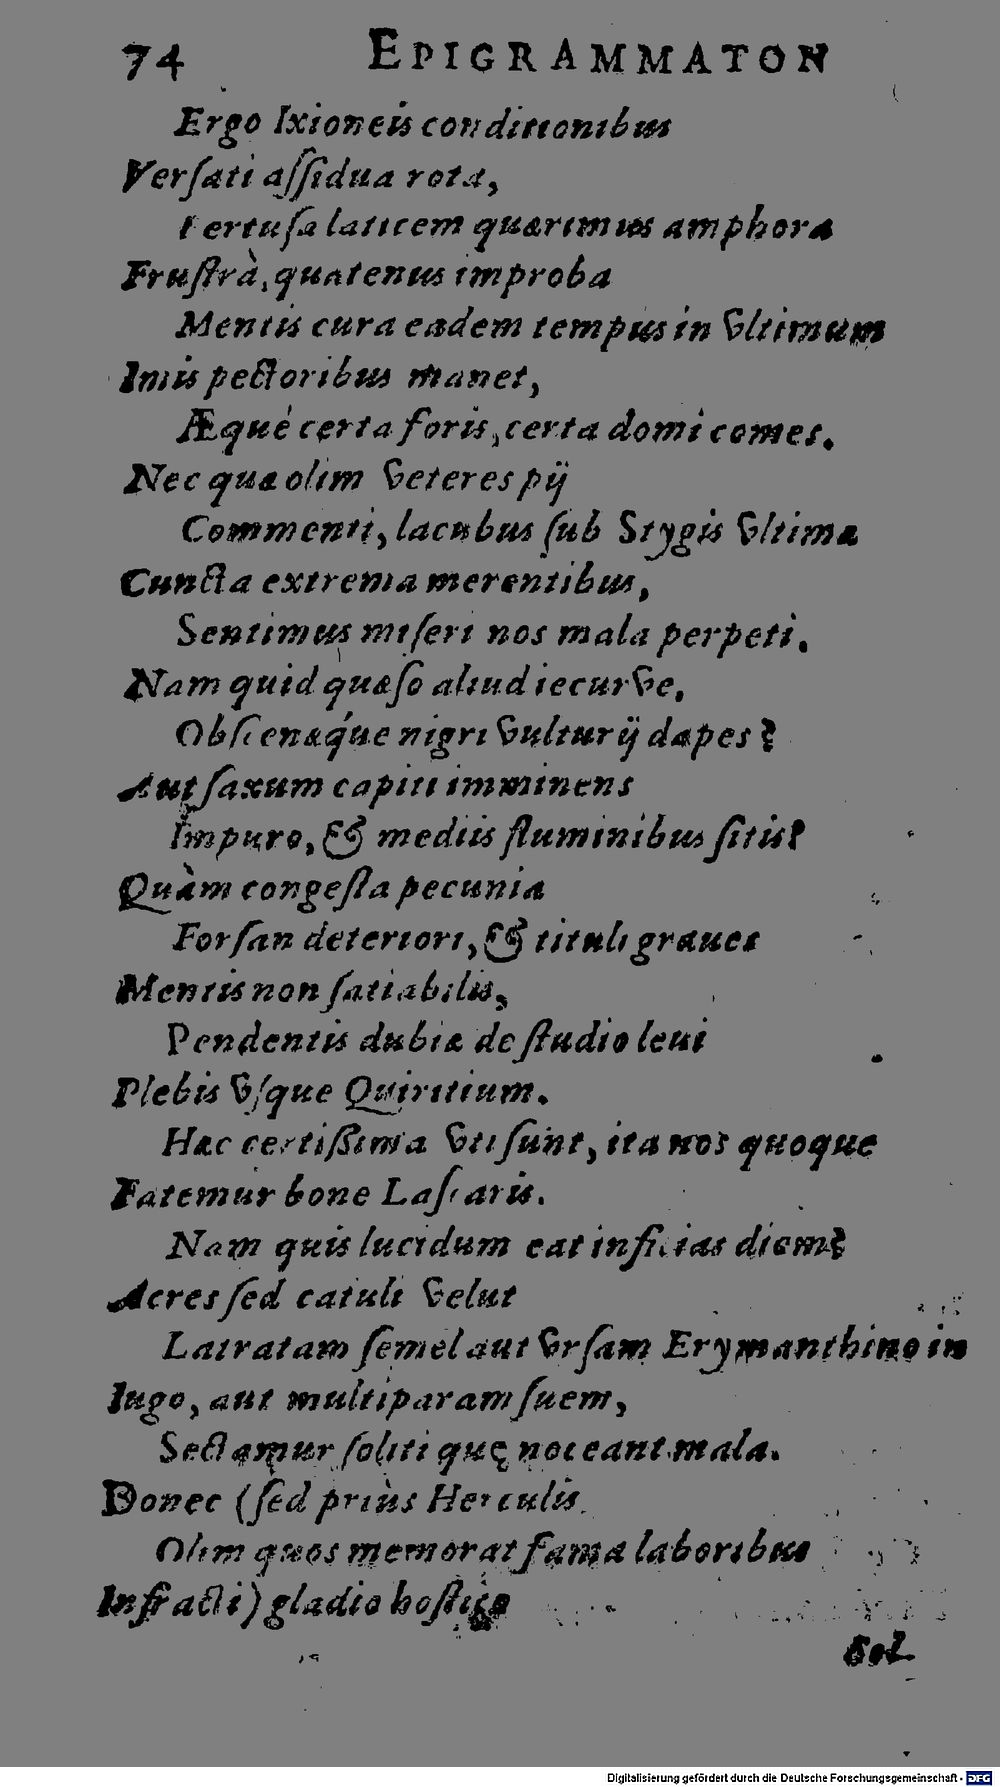 74 EPIGRAMMATON
Ergo Ixioneis conditionibus
Verſati aſſidua rota,
Pertuſa laticem quærimus amphora
Fruſtrà, quatenus improba
Mentis cura eadem tempus in vltimum
Imis pectoribus manet,
Æquè certa foris, certa domi comes.
Nec quæ olim veteres pij
Commenti, lacubus ſub Stygis vltima
Cuncta extrema merentibus,
Sentimus miſeri nos mala perpeti.
Nam quid quæſo aliud iecurve,
Obſcenæq́ue nigri vulturij dapes?
Aut ſaxum capiti imminens
Impuro, & mediis fluminibus ſitis?
Quàm congeſta pecunia
Forſan deteriori, & tituli graues
Mentis non ſatiabilis,
Pendentis dubiæ de ſtudio leui
Plebis vſque Quiritium.
Hæc certißima vti ſunt, ita nos quoque
Fatemur bone Laſcaris.
Nam quis lucidum eat inficias diem?
Acres ſed catuli velut
Latratam ſemel aut vrſam Erymanthino in
Iugo, aut multiparam ſuem,
Sectamur ſoliti quę noceant mala.
Donec (ſed priùs Herculis
Olim quos memorat fama laboribus
Infracti) gladio hoſtico
Digitalisierung gefördert durch die Deutsche Forschungsgemeinschaft - DFG